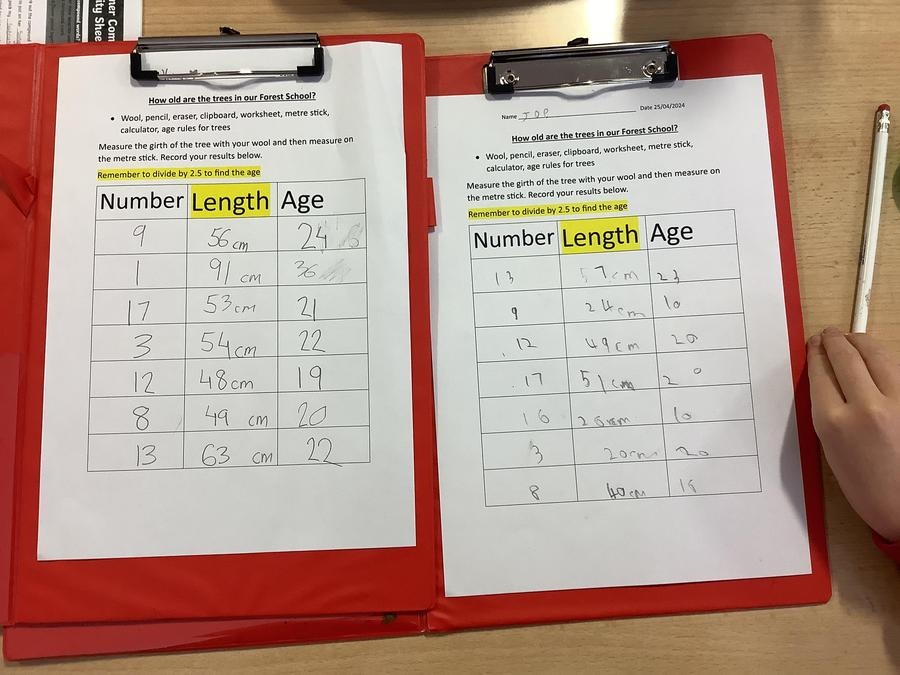 How old are the trees in our Forest School?
• Wool, pencil, eraser, clipboard, worksheet, metre stick,
calculator, age rules for trees
Measure the girth of the tree with your wool and then measure on
the metre stick. Record your results below.
Remember to divide by 2.5 to find the age
Number Length Age
9 56 cm 24
1 91 cm 36
17 53 cm 21
3 54 cm 22
12 48 cm 19
8 49 cm 20
13 63 cm 22
Name Date 25/04/2024
How old are the trees in our Forest School?
• Wool, pencil, eraser, clipboard, worksheet, metre stick,
calculator, age rules for trees
Measure the girth of the tree with your wool and then measure on
the metre stick. Record your results below.
Remember to divide by 2.5 to find the age
Number Length Age
13 57cm 23
9 24cm 10
12 49cm 20
17 51cm 20
16 10
3 20cm 20
8 40cm